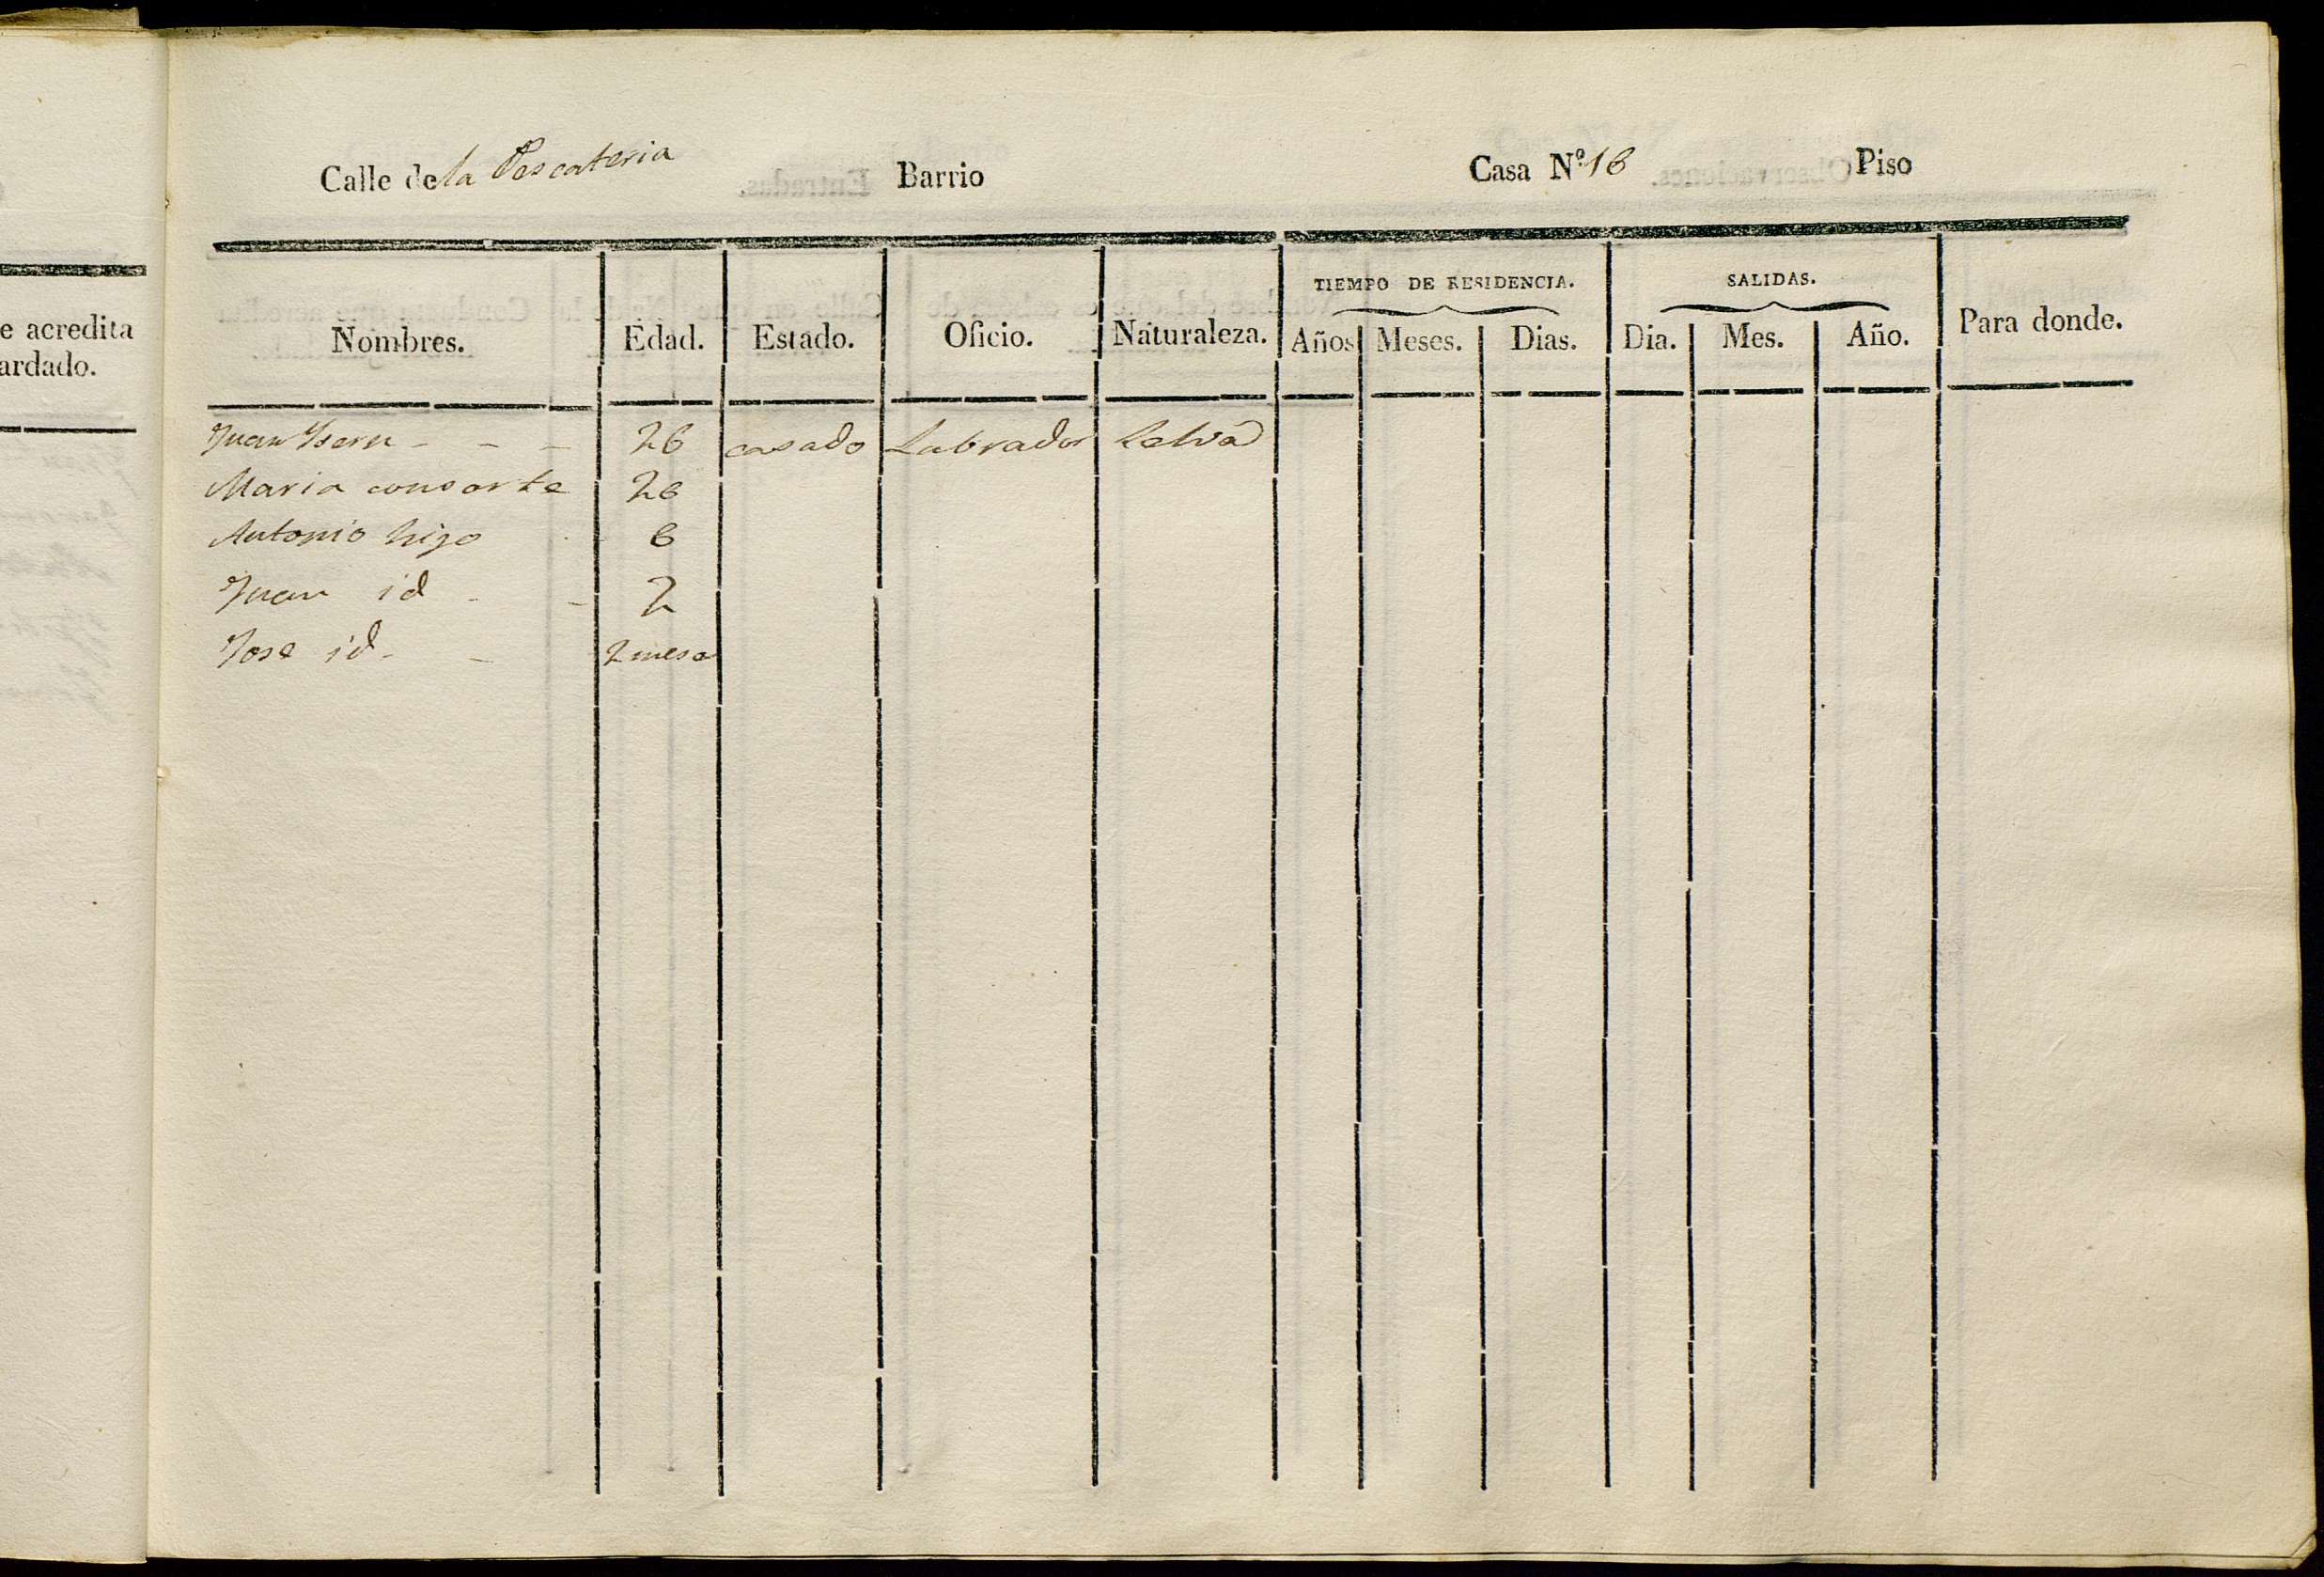 Calle de la Pescateria Barrio Casa Nº 16 Piso
e acredita
ardado.
TIEMPO DE RESIDENCIA. SALIDAS.
Nombres. Edad. Estado. Oficio. Naturaleza. Años Meses. Dias. Dia. Mes. Año. Para donde.
Juan Ysern - - - 26 casado Labrador Selva
Maria consorte 26
Antonio hijo 6
Juan id - - 2
Jose id - - 2 mese